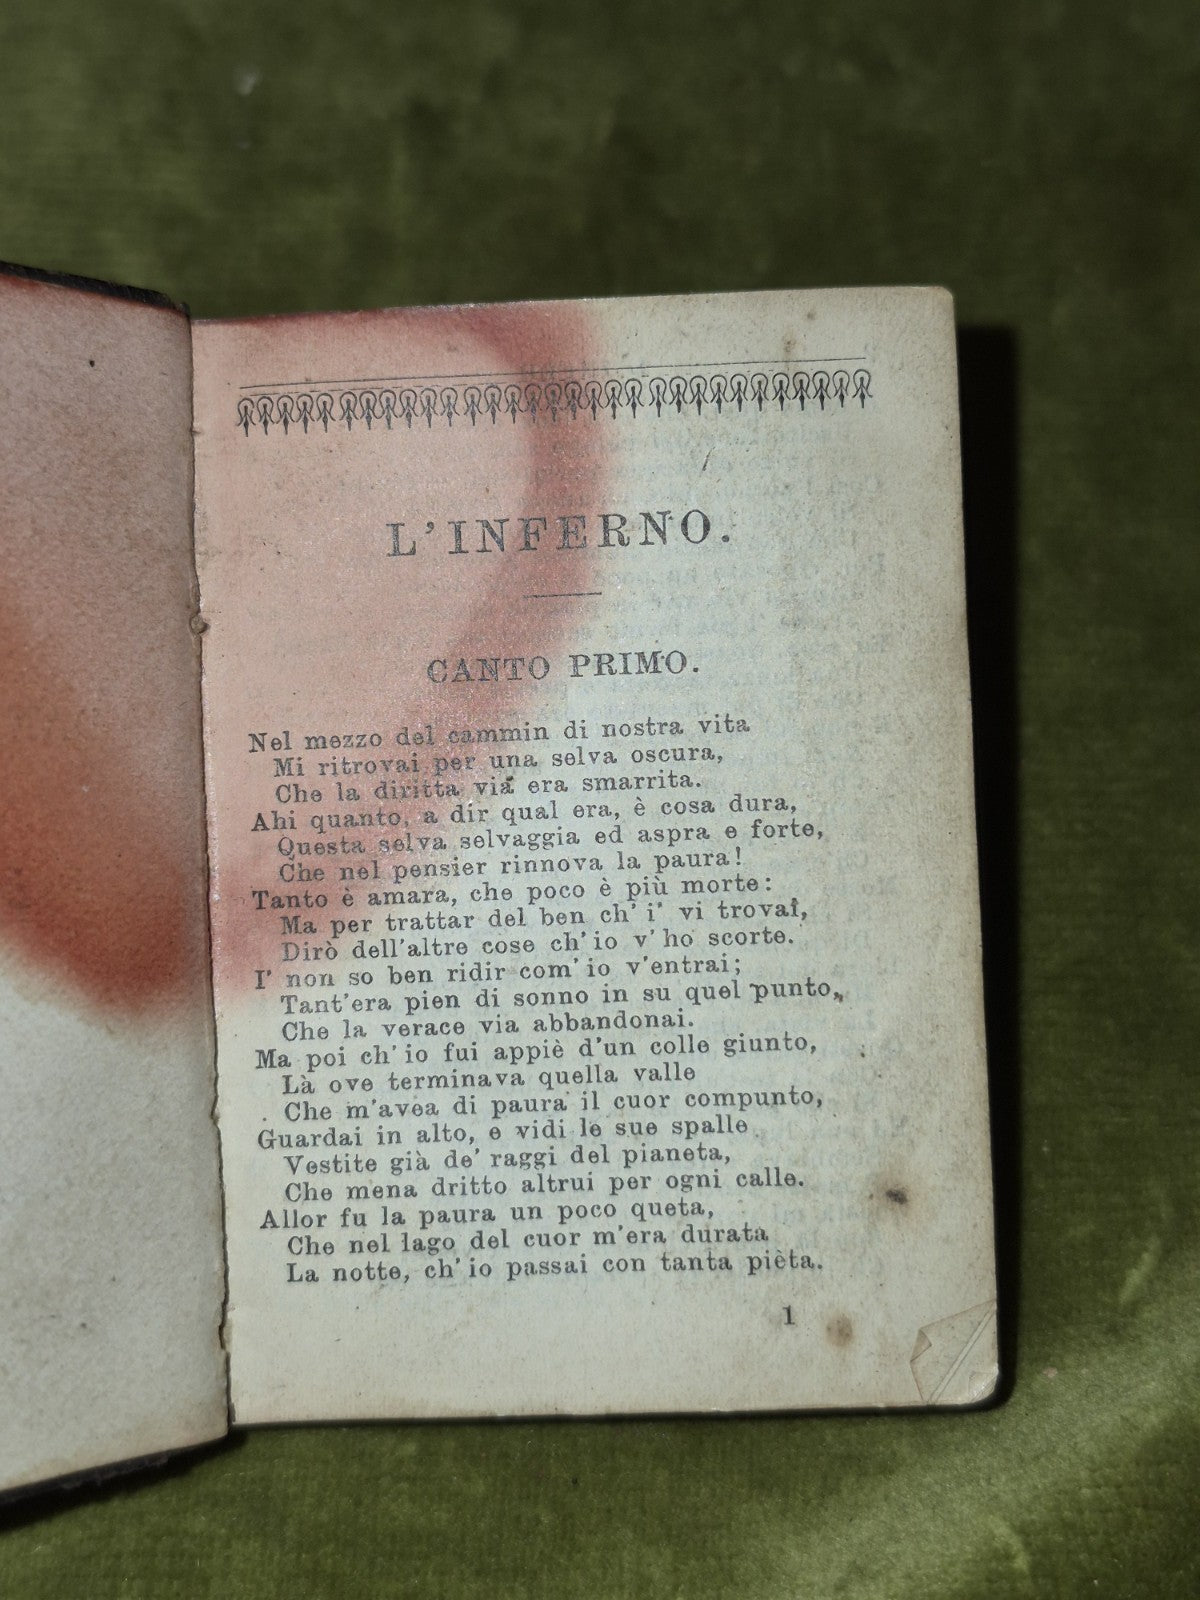 L'INFERNO.
CANTO PRIMO.
Nel mezzo del cammin di nostra vita
Mi ritrovai per una selva oscura,
Che la diritta via era smarrita.
Ahi quanto, a dir qual era, è cosa dura,
Questa selva selvaggia ed aspra e forte,
Che nel pensier rinnova la paura!
Tanto è amara, che poco è più morte:
Ma per trattar del ben ch' i' vi trovai,
Dirò dell'altre cose ch' io v' ho scorte.
I' non so ben ridir com' io v'entrai;
Tant'era pien di sonno in su quel punto,
Che la verace via abbandonai.
Ma poi ch' io fui appiè d'un colle giunto,
Là ove terminava quella valle
Che m'avea di paura il cuor compunto,
Guardai in alto, e vidi le sue spalle
Vestite già de' raggi del pianeta,
Che mena dritto altrui per ogni calle.
Allor fu la paura un poco queta,
Che nel lago del cuor m'era durata
La notte, ch' io passai con tanta pièta.
1